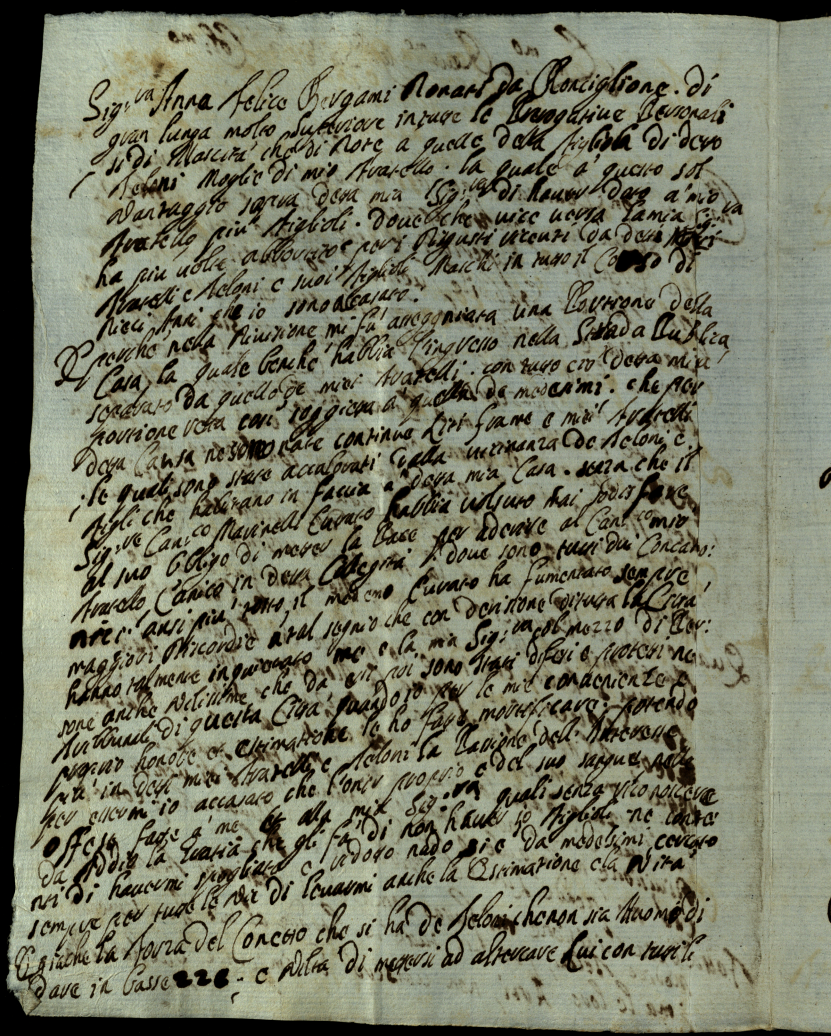 Sig.ra Anna Felice Bergami Ronati da Ronciglione. Di
gran lunga molto superiore in tutte le Prerogative Personali
si di Nascita che di Dote a quelle della figliola di detto
Feloni Moglie di mio fratello. la quale a questo sol
vantaggio sopra detta mia Sig.ra di haver dato a mio
fratello più figlioli. dove che vice versa la mia Sig.ra
ha più volte abbortito per i disgusti ricevuti da detti miei
fratelli e Feloni e suoi figlioli Maschi in tutto il Corso di
Dieci Anni che io sono accasato.
E perché nella Divisione mi fu assegniata una Portione della
Casa, la quale benche habbia l'ingresso nella Strada Publica
separato da quello de miei fratelli. con tutto ciò detta mia
portione resta così soggetta a quella de medesimi. che per
detta Causa ne sono nate continue Liti frame e miei fratelli
le quali sono state accalorati dalla vicinanza de Feloni e
figli che habitano in faccia a detta mia Casa. senza che il
Sig.re Can.co Marinelli Curato habbia volsuto mai sodisfare
al suo obligo di metter la Pace per aderire al Can.co mio
fratello Canico in detta Collegiata, dove sono tutti dui Concano:
nici. anzi più tosto il medemo Curato ha fumentato sempre
maggiori discordie a tal segnio che con derisione di tutta la Città
hanno talmente inquietato me e la mia Sig.ra col mezzo di Per:
sone anche vilissime che da essi poi sono stati difesi e protetti ne
Tribunali di questa Città quando io per le mie conveniente e
proprio honore et estimatione le ho fatte mortificare; potendo
più in detti miei fratelli e Feloni la Passione dell'Interesse
per essermi io accasato che l'onor proprio e del suo sangue nelle
offese fatte a me et alla mia Sig.ra quali senza riconoscere
da Iddio la Gratia che gli fa di non haver io figlioli ne conten:
ti di havermi spogliato e ridotto nudo si è da medesimi cercato
sempre per tutte le vie di levarmi anche la Estimatione e la Vita
E perche la forza del Concetto che si ha de Feloni che non sia Huomo di
dare in bassezze; e viltà di mettersi ad altercare lui con tutti le